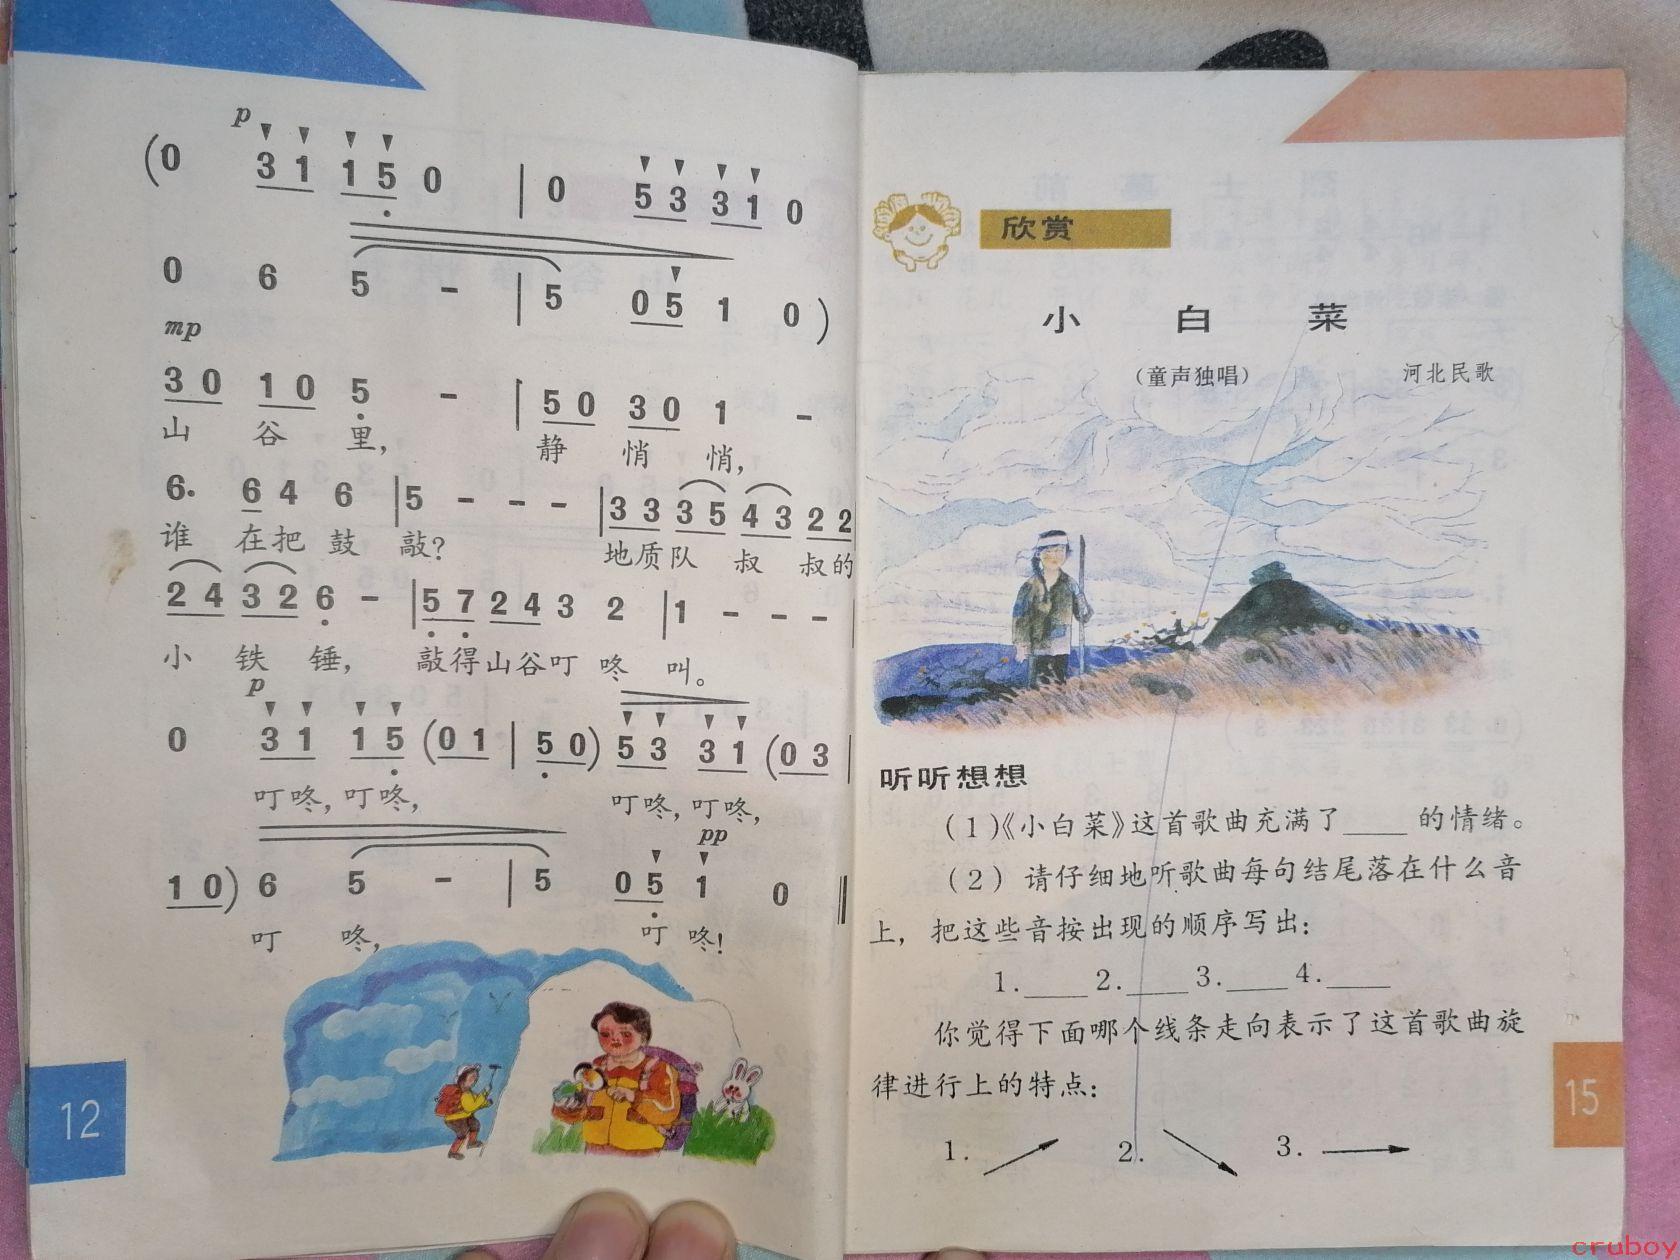 p
(0 3 1 1 5 0 | 0 5 3 3 1 0
0 6 5 - | 5 0 5 1 0)
mp
3 0 1 0 5 - | 5 0 3 0 1 -
山 谷 里, 静 悄 悄,
6. 6 4 6 | 5 - - - | 3 3 3 5 4 3 2 2
谁 在把 鼓 敲? 地质队 叔 叔的
2 4 3 2 6 - | 5 7 2 4 3 2 | 1 - - -
小 铁 锤, 敲得山谷叮 咚 叫。
p
0 3 1 1 5 (0 1 | 5 0) 5 3 3 1 (0 3 |
叮咚,叮咚, 叮咚,叮咚,
pp
1 0) 6 5 - | 5 0 5 1 0 ‖
叮 咚, 叮 咚!
12
欣赏
小 白 菜
(童声独唱) 河北民歌
听听想想
(1)《小白菜》这首歌曲充满了____的情绪。
(2) 请仔细地听歌曲每句结尾落在什么音
上, 把这些音按出现的顺序写出:
1.____2.____3.____4.____
你觉得下面哪个线条走向表示了这首歌曲旋
律进行上的特点:
1. 2. 3.
15
cruboy